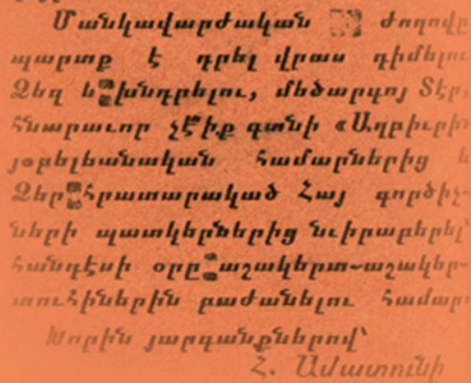 Մանկավարժական ժողովը
պարտք է դրել վրաս դիմելու
Ձեզ և խնդրելու, մեծարգոյ Տէր,
հնարաւոր չէ՞ իք գտնի «Աղբիւրի»
յօբելեանական համարներից և
Ձեր հրատարակած Հայ գործիչ-
ների պատկերներից նւիրաբերել՝
հանդէսի օրը աշակերտ-աշակեր-
տուհիներին բաժանելու համար։
Խորին յարգանքներով՝
Հ. Ավատունի